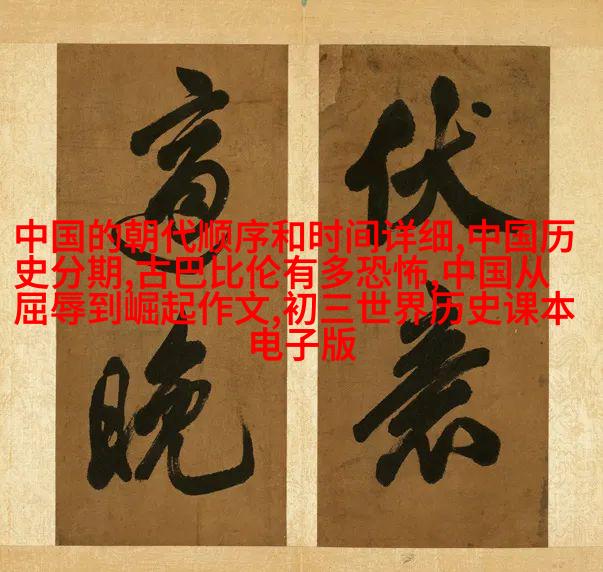 伏
晚
中国的朝代顺序和时间详细,中国历
史分期,古巴比伦有多恐怖,中国从
屈辱到崛起作文,初三世界历史课本
电子版